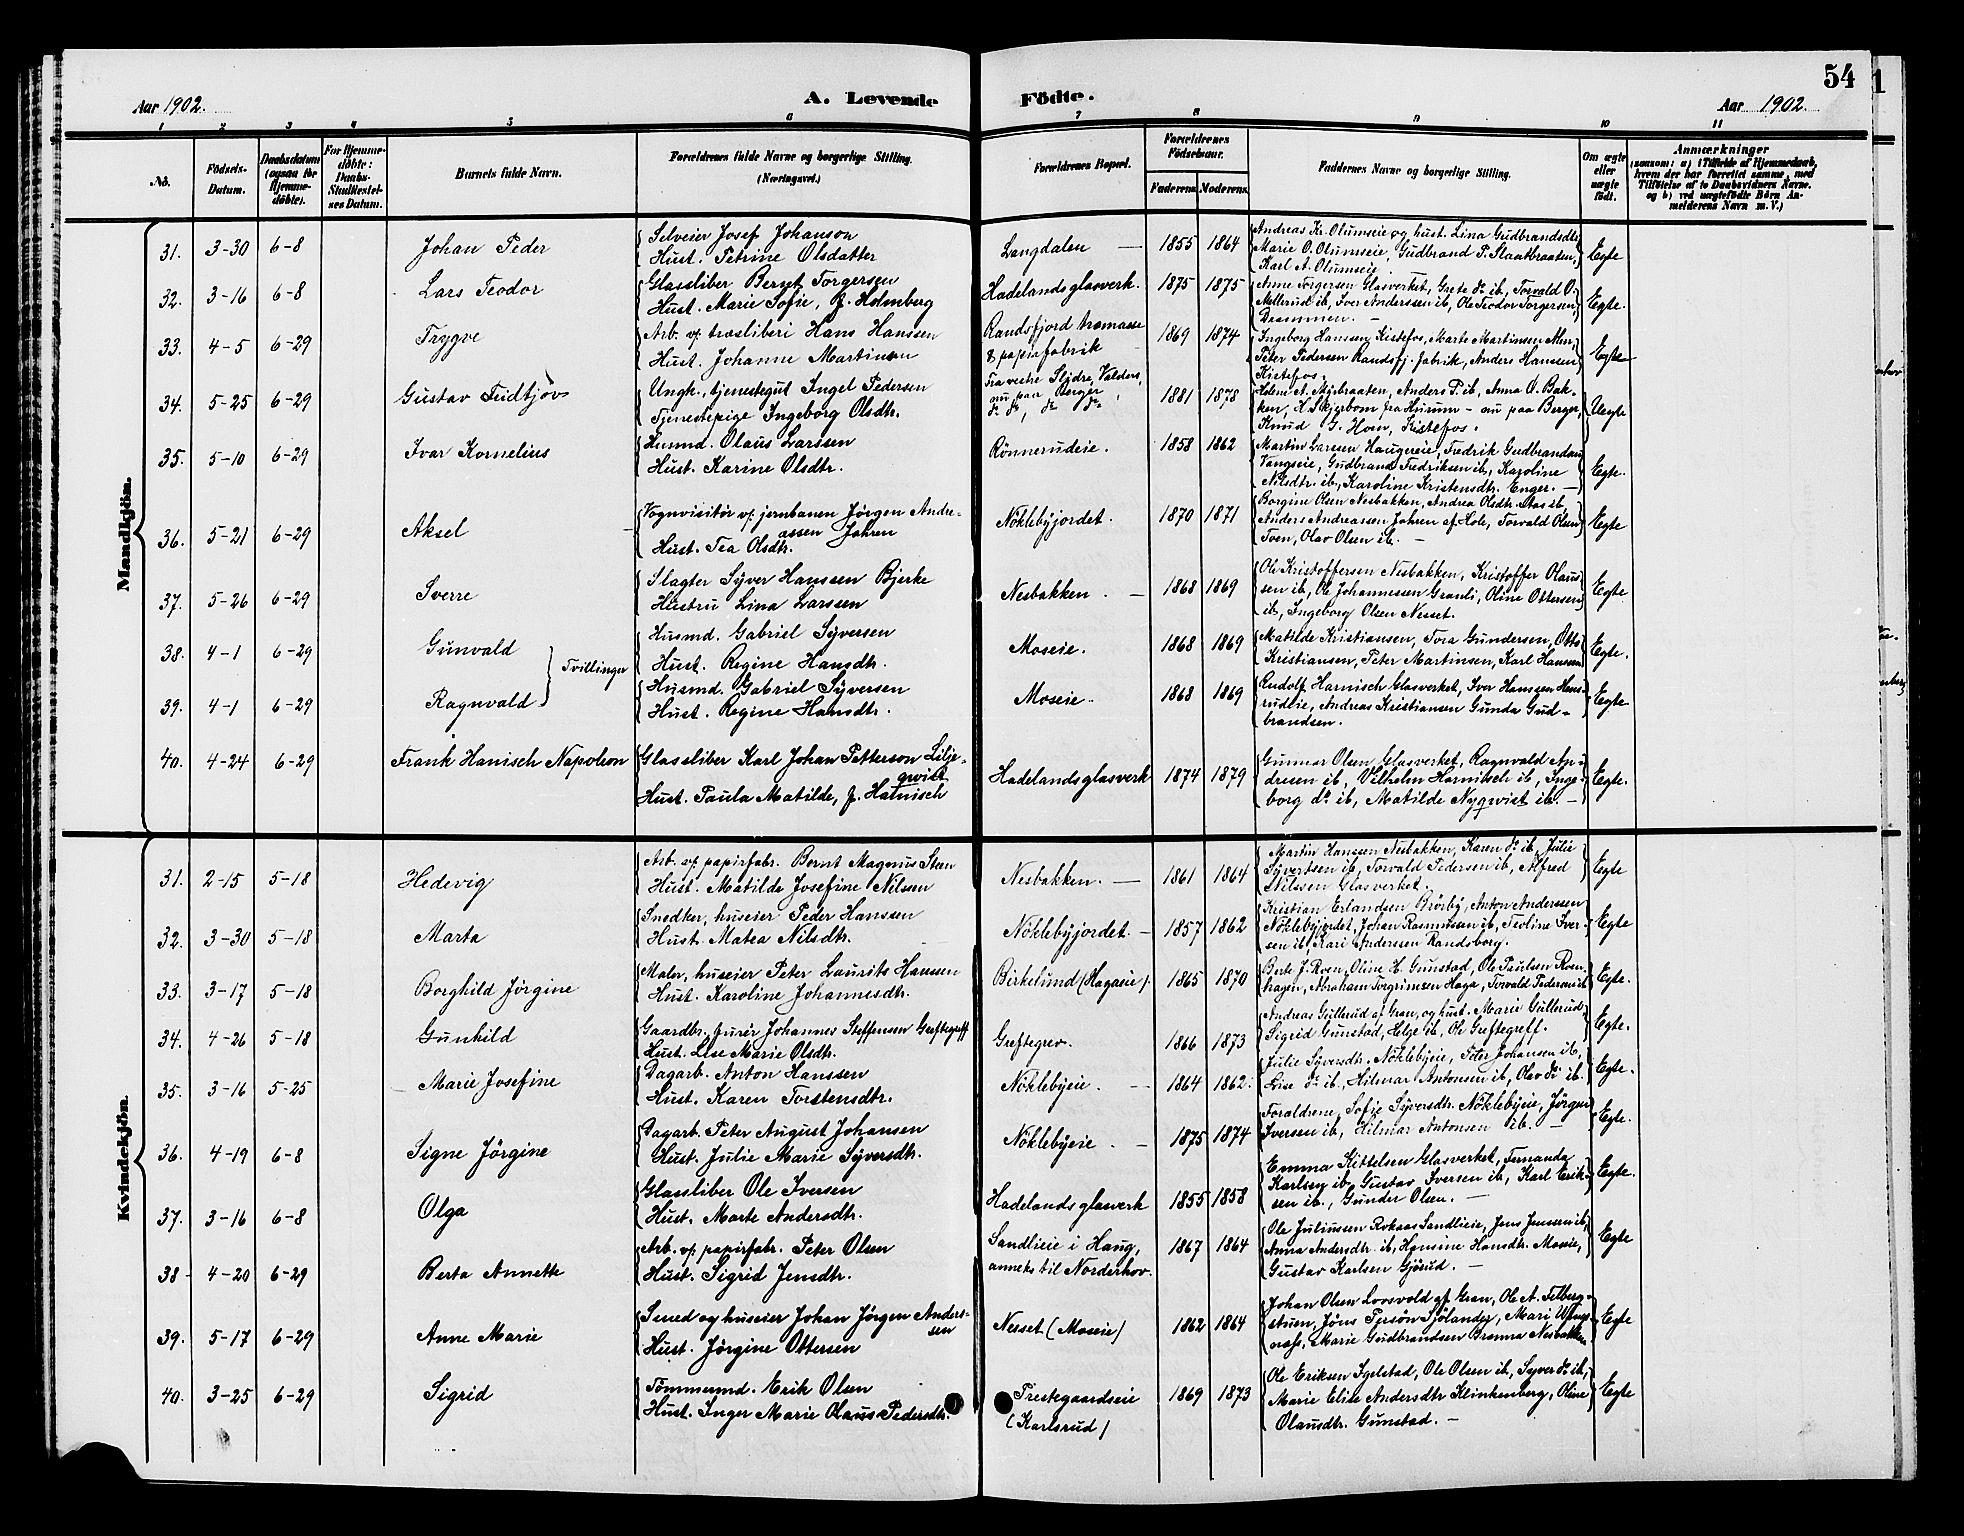 54
Aar 1902. A. Levende Födte. Aar 1902.
1 2 3 4 5 6 7 8 9 10 11
No. Födsels-Datum. Daabsdatum (ogsaa for Hjemmedöbte). For Hjemmedöbte: Daabs-Stadfæstelses Datum. Barnets fulde Navn. Forældrenes fulde Navne og borgerlige Stilling. (Næringsvei.) Forældrenes Bopæl. Forældrenes Födselsaar. Faderens. Moderens. Faddernes Navne og borgerlige Stilling. Om ægte eller uægte födt. Anmærkninger (saasom: a) i Tilfælde af Hjemmedaab, hvem der har forrettet samme, med Tilföielse af to Daabsvidners Navne, og b) ved uægtefödte Börn Anmelderens Navn m. V.)
Mandkjön.
31. 3-30 6-8 Johan Peder
Selveier Josef Johanson
Hust. Petrine Olsdatter
Langdalen 1855 1864
Andreas Kr. Olumseie og hust. Lina Gudbrandsdtr.
Marie O. Olumseie, Gudbrand P.
Karl A. Olumseie.
Egte
32. 3-16 6-8 Lars Teodor
Glassliber Bernt Torgersen
Hust. Marie Sofie, f. Holmberg
Hadelandsglasverk. 1875 1875
Anne Torgersen Glasverket, Grete do ib, Torvald O.
Mellerud ib, Iver Anderssen ib, Ole Teodor Torgersen,
Drammen.
Egte.
33. 4-5 6-29 Trygve
Arb. v/ træsliberi Hans Hanssen
Hust. Johanne Martinsen
Randsfjord træmasse
& papirfabrik 1869 1874
Ingeborg Hanssen Kistefos, Marte Martinsen
Peter Pedersen Randsfj. fabrik, Anders Hanssen
Kistefos.
Egte
34. 5-25 6-29 Gustav Fridtjov
Ungk., tjenestegut Ingel Pedersen
Tjenestepige Ingeborg Olsdtr.
Fra vestre Slidre, Valders,
nu paa Berger
do do, do do 1881 1878
Helene A. Myrbraaten, Anders P. ib, Anna O. Bak-
ken, H. Skjerbom fra Hurum - nu paa Berger,
Knud G. Hoen, Kistefos.
Uegte
35. 5-10 6-29 Ivar Kornelius
Husmd. Olaus Larssen
Hust. Karine Olsdtr.
Rönnerudeie. 1858 1862
Martin Larssen Haugereie, Fredrik Gudbrandsen
Vangseie, Gudbrand Fredriksen ib, Karoline
Nilsdtr. ib, Karoline Kristensdtr. Enger.
Egte.
36. 5-21 6-29 Aksel
Vognvisitör v/ jernbanen Jörgen Andre-
assen Jahren
Hust. Tea Olsdtr.
Nöklebyjordet. 1870 1871
Borgine Olsen Nesbakken, Andrea Olsdtr. ib,
Anders Andreassen Jahren af Hole, Torvald Olsen
Tven, Olav Olsen ib.
Egte
37. 5-26 6-29 Sverre
Slagter Syver Hanssen Bjerke
Hustru Lina Larssen
Nesbakken. 1868 1869
Ole Kristoffersen Nesbakken, Kristoffer Olaus-
sen ib, Ole Johannessen Granli, Oline Ottersen
ib, Ingeborg Olsen Nesset.
Egte.
38. 4-1 6-29 Gunvald
Husmd. Gabriel Syversen
Hust. Regine Hansdtr.
Moseie. 1868 1869
Matilde Kristiansen, Tora Gundersen, Otto
Kristiansen, Peter Martinsen, Karl Hanssen
Egte.
Tvillinger
39. 4-1 6-29 Ragnvald
Husmd. Gabriel Syversen
Hust. Regine Hansdtr.
Moseie. 1868 1869
Rudolf Harnisch Glasverket, Iver Hanssen Hens-
rudeie, Andreas Kristiansen Gunda Gud-
brandsen.
Egte
40. 4-24 6-29 Frank Hanisch Napoleon
Glassliber Karl Johan Petterson Lilje-
qvist
Hust. Paula Matilde, f. Harnisch
Hadelandsglasverk 1874 1879
Gunnar Olsen Glasverket, Ragnvald An-
dresen ib, Vilhelm Harnitsch ib, Inge-
borg do ib, Matilde Nyqvist ib.
Egte.
Kvindekjön.
31. 2-15 5-18 Hedevig
Arb. v/ papirfabr. Bernt Magnus Steen
Hust. Matilde Josefine Nilssen
Nesbakken. 1861 1864
Martin Hanssen Nesbakken, Karen do ib, Julie
Syvertsen ib, Torvald Pedersen ib, Alfred
Nilssen Glasverket.
Egte
32. 3-30 5-18 Marta
Snedker, huseier Peder Hanssen
Hust. Matea Nilsdtr.
Nöklebyjordet. 1857 1862
Kristian Erlandsen Brörby, Anton Anderssen
Nöklebyjordet, Johan Rasmussen ib, Teoline Iver-
sen ib, Kari Anderssen Randsborg.
Egte
33. 3-17 5-18 Borghild Jörgine
Maler, huseier Peter Laurits Hanssen
Hust. Karoline Johannesdtr.
Birkelund (Hagaeie). 1865 1870
Berte J. Roen, Oline H. Gunstad, Ole Paulsen Roen-
hagen, Abraham Torgrimsen Haga, Torvald Pedersen ib
Egte.
34. 4-26 5-18 Gunhild
Gaardbr. Johannes Steffensen Greftegreff
Hust. Lise Marie Olsdtr.
Greftegrev. 1866 1873
Andreas Gullerud af Gran, og hust. Marie Gullerud
Sigrid Gunstad, Helge ib. Ole Greftegreff.
Egte.
35. 3-16 5-25 Marie Josefine
Dagarb. Anton Hanssen
Hust. Karen Torstensdtr.
Nöklebyeie. 1864 1862.
Julie Syversdtr. Nöklebyeie, Peter Johansen ib,
Lise do ib, Hilmar Antonsen ib, Olav do ib.
Egte.
36. 4-19 6-8 Signe Jörgine
Dagarb. Peter August Johansen
Hust. Julie Marie Syversdtr.
Nöklebyeie. 1875 1874
Forældrene, Sofie Syversdtr. Nöklebyeie, Jörgen
Iversen ib, Hilmar Antonsen ib.
Egte.
37. 3-16 6-8 Olga
Glassliber Ole Iversen
Hust. Marte Andersdtr.
Hadelandsglasverk 1855 1858
Emma Kittelsen Glasverket, Fernanda
Karlsen ib, Gustav Iversen ib, Karl Erik-
sen ib, Gunder Olsen.
Egte.
38 4-20 6-29 Berta Annette
Arb. v/ papirfabr. Peter Olsen
Hust. Sigrid Jensdtr.
Sandlieie i Haug,
anneks til Norderhov. 1867 1864
Ole Juliussen Sandlieie, Jens Jenssen ib,
Anna Andersdtr. ib, Hansine Hansdtr. Moseie,
Gustav Karlsen Gjörud.
Egte
39. 5-17 6-29 Anne Marie
Smed og huseier Johan Jörgen Anders-
sen
Hust. Jörgine Ottersen
Nesset (Moseie) 1862 1864
Johan Olsen Loosvold af Gran, Ole A. Felberg-
stuen, Jöns Persön Sjölander, Mari
Marie Gudbrandsen Nesbakken
Egte
40. 3-25 6-29 Sigrid
Tömmermd. Erik Olsen
Hust. Inger Marie Olaus Pedersdtr.
Prestegaardseie
(Karlsrud) 1869 1873
Ole Eriksen Igelstad, Ole Olsen ib, Syver do ib,
Marie Elise Andersdtr Klinkenberg, Oline
Olausdtr. Gunstad.
Egte